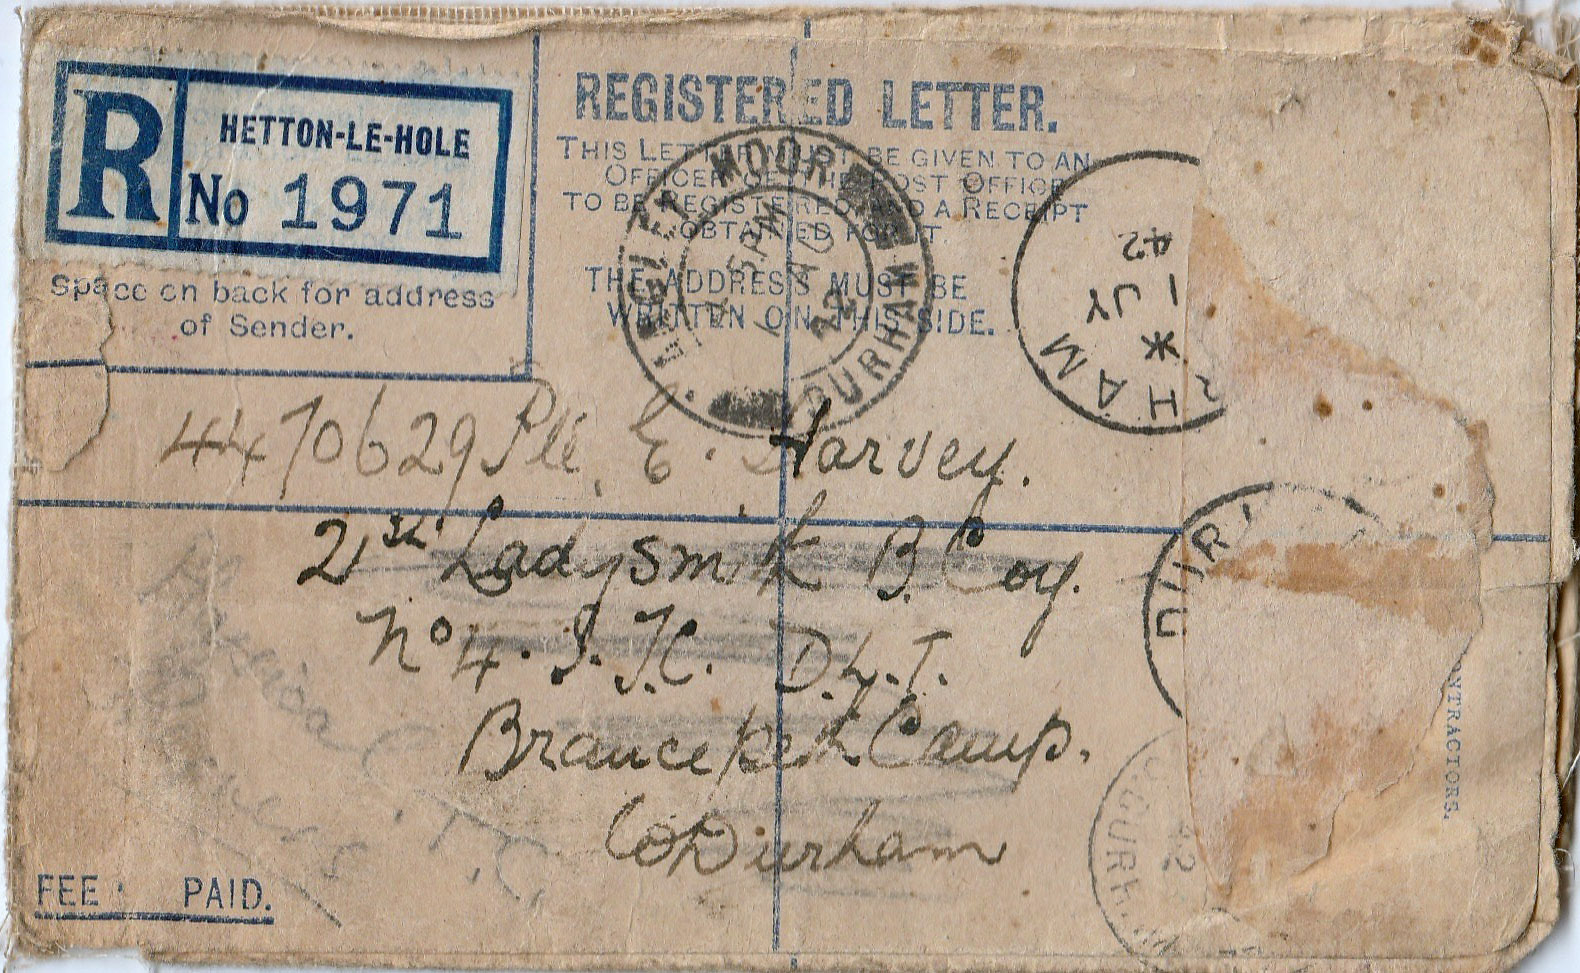 R
HETTON-LE-HOLE
No 1971
Space on back for address
of Sender.
REGISTERED LETTER.
THIS LETTER MUST BE GIVEN TO AN
OFFICER OF THE POST OFFICE
TO BE REGISTERED AND A RECEIPT
OBTAINED FOR IT.
THE ADDRESS MUST BE
WRITTEN ON THIS SIDE.
LANGLEY MOOR DURHAM
5 PM
42
HAM
1 JY
42
4470629 Pte. E. Harvey.
21st Ladysmith B. Coy.
No 4. I.T.C. D.L.I.
Brancepeth Camp.
Co Durham
DUR
CONTRACTORS.
42
FEE PAID.